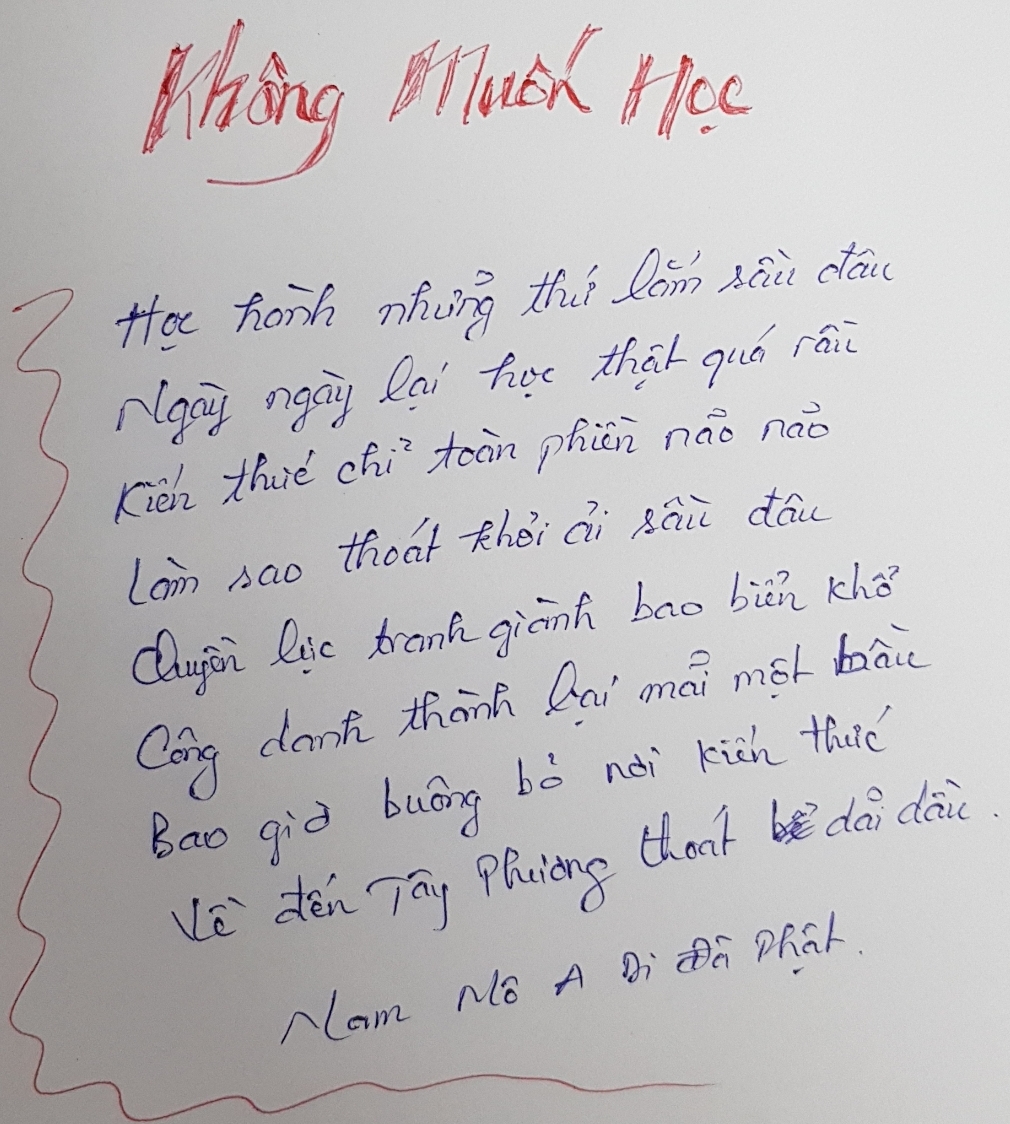 Không Muốn Học
Học hành những thứ lắm sầu đâu
Ngày ngày lại học thật quá rầu
Kiến thức chỉ toàn phiền não não
Làm sao thoát khỏi ải sầu đâu
Quyền lực tranh giành bao biển khổ
Công danh thành lại mãi một bầu
Bao giờ buông bỏ nơi kiến thức
Về đến Tây Phương thoát dãi dầu.
Nam Mô A Di Đà Phật.